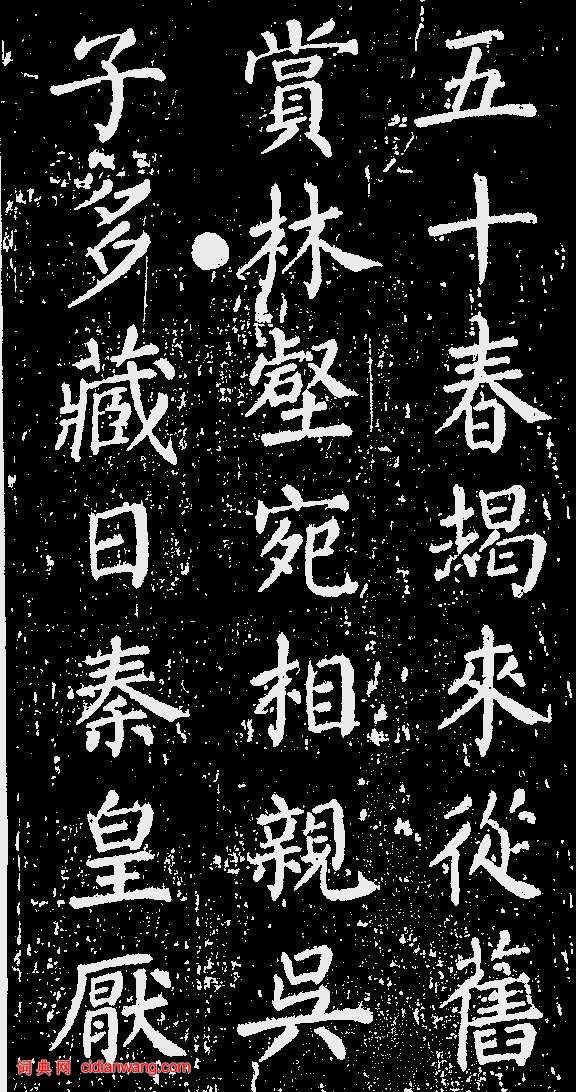 五十春朅來從舊
賞林壑宛相親吳
子多藏日秦皇厭
词典网 cidianwang.com